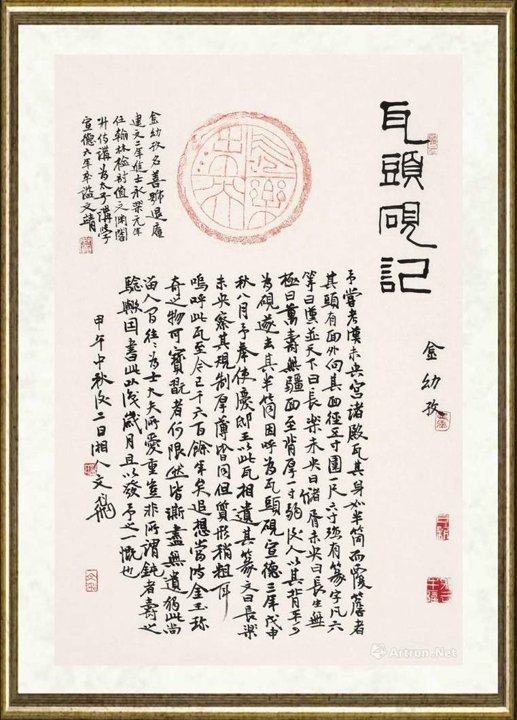 瓦頭硯記
金幼孜
予嘗考漢未央宮諸殿瓦其身如半筒而覆簷者
其頭有面外向其面徑五寸圍一尺六寸強有篆字凡六
等曰漢並天下曰長樂未央曰儲胥未央曰長生無
極曰萬壽無疆面至背厚一寸弱後人以其背平可
為硯遂去其半筒因呼為瓦頭硯宣德三年戊申
秋八月予奉使慶邸王以此瓦相遺其篆文曰長樂
未央察其規制厚薄皆同但質形稍粗耳
嗚呼此瓦至今已千六百餘年矣追想當時金玉珍
奇之物可寶翫者何限然皆澌盡無遺獨此尚
留人間往往為士大夫所愛重豈非所謂鈍者壽之
驗歟因書此以識歲月且以發予之一慨也
甲午中秋後二日湘人文飛
長樂未央
金幼孜名善號退庵
建文二年進士永樂元年
任翰林檢討值文淵閣
升侍講為太子講學
宣德六年卒諡文靖
Artron.Net